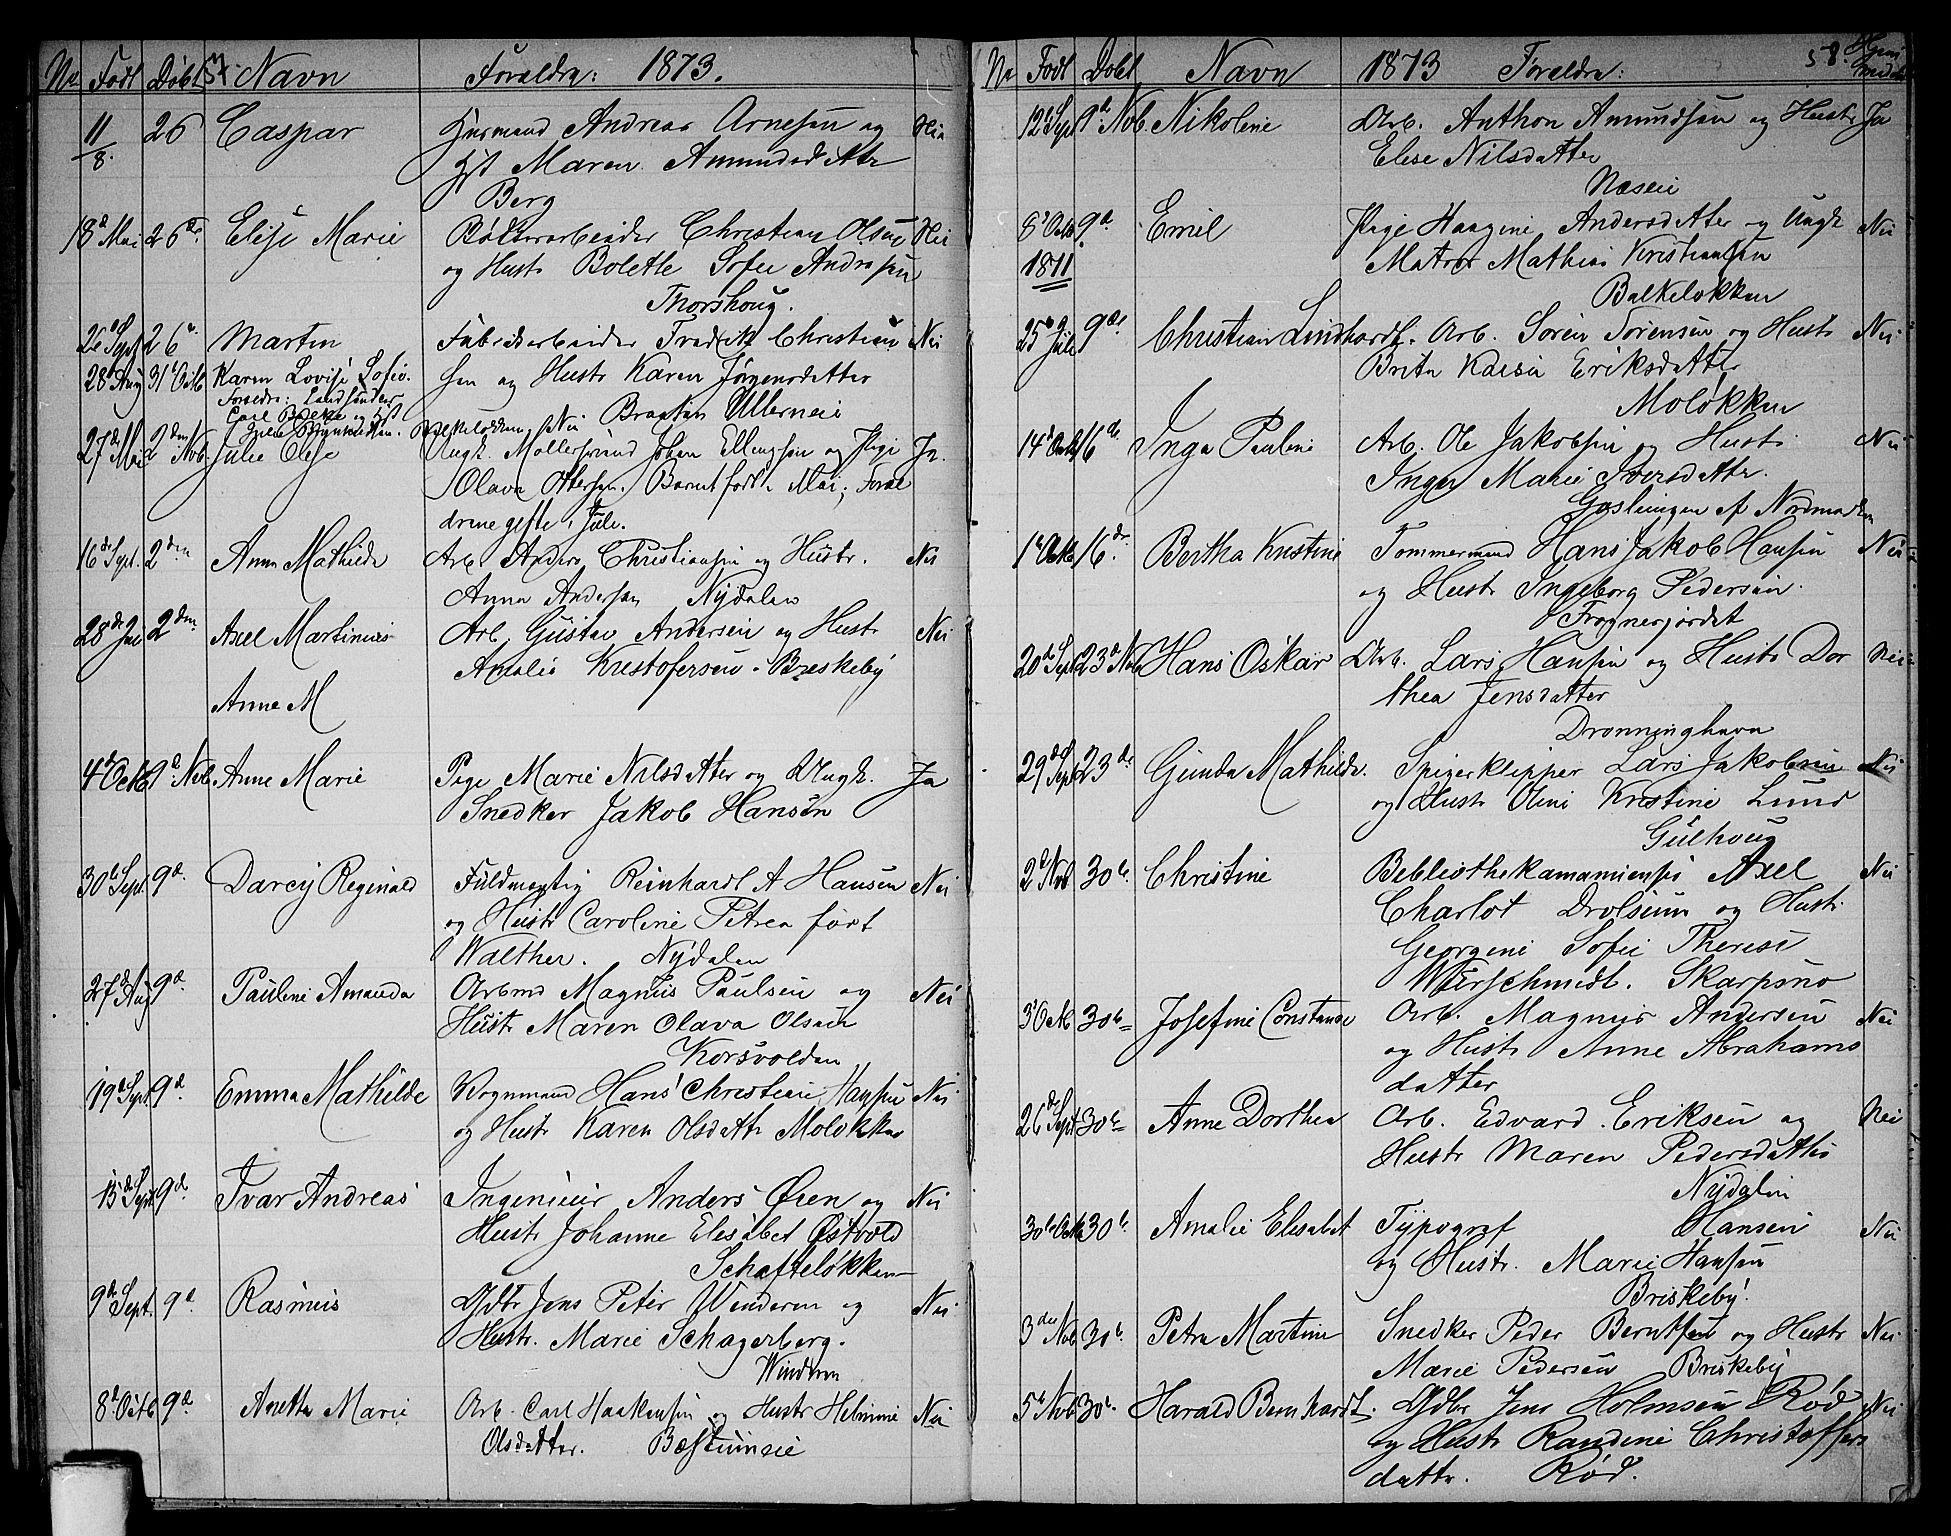 No Født Døbt 57 Navn Forældre: 1873.
11/8. 26 Caspar Husmand Andreas Arnesen og Nei
Hst Maren Amundsdatter
Berg
18d Mai 26de Elise Marie Christian Olsen Nei
og Hustr Bolette Sofie Andresen
Thorshoug.
26 Sept 26 Martin Fabrikarbeider Fredrik Christian Nei
28 Aug 31 Octb Karen Lovise Sofie. sen og Hustr Karen Jørgensdatter
Forældre: Landhandler
Braaten Ullernei
Carl Balke og Hst
Balkeløkken Nei
27de Mai 2den Nov. Julie Elise Ungk. Møllersvend Johan Ellingsen og Pige Ja.
Olava Ottersen. Barnet født i Mai; Foræl
drene gifte i Juli.
16de Sept. 2den Anna Mathilde Arb. Anders Christiansen og Hustr. Nei
Anna Andersen Nydalen
28de Juni 2den Axel Martinius Arb. Gustav Andersen og Hustr Nei
Amalie Kristofersen. Briskeby
Anne M
4d Octb 9d Nov. Anne Marie Pige Marie Nilsdatter og Ungk. Ja
Snedker Jakob Hansen
30te Sept. 9d. Darcy Reginald Fuldmægtig Reinhardt A Hansen Nei
og Hustr Caroline Petrea født
Walther. Nydalen
27d Aug 9d Pauline Amanda Arbmd Magnus Paulsen og Nei
Hustr Maren Olava Olsen
Korsvolden
19d Sept. 9d. Emma Mathilde Vognmand Hans Christian Hansen Nei
og Hustr Karen Olsdattr Moløkken
15d Sept 9d Ivar Andreas Ingeniør Anders Øien og Nei
Hustr Johanne Elisabet Østvold
Schafteløkken
9d Sept. 9d. Rasmus Gdbr Jens Peter Winderen og Nei
Hustr. Marie Schagerberg.
Winderen
8d Octb 9d Anette Marie Arb. Carl Haakensen og Hustr Helmine Nei
Olsdatter. Bestumeie
No Født Døbt Navn 1873 Forældre: 58. Hjemmedøbt
12d Sept 9d Nov. Nikoline Arb. Anthon Amundsen og Hustr Ja
Elise Nilsdatter
Næseie
8d Octb 9d Emil Pige Haagine Andersdatter og Ungk Nei
1871 Matros Mathias Kristiansen
Balkeløkken
25de Juli 9de Christian Lindhardt. Arb. Søren Sørensen og Hustr Nei
Brita Kaisa Eriksdatter
Moløkken
14d Octb 16de Inga Pauline Arb. Ole Jakobsen og Hustr Nei
Inger Marie Iversdattr.
Goslingen af Nordmarken
1d Octb 16de. Bertha Kristine Tømmermand Hans Jakob Hansen Nei
og Hustr Ingeborg Pedersen.
Frognerjordet
20d Sept 23d Nov Hans Oskar Arb. Lars Hansen og Hustr Dor Nei
thea Jensdatter
Dronninghavn
29d Sept 23de Gunda Mathilde. Spigerklipper Lars Jakobsen Nei
og Hustr Oline Kristine Lund
Gulhoug
2d Nov 30te. Christine Bebliothekamanuensis Axel Nei
Charlot Drolsum og Hustr
Georgine Sofie Therese
Skarpsno
3d Octb 30te Josefine Constance Arb. Magnus Andersen Nei
og Hustr Anne Abrahams
datter
26de Sept 30te Anne Dorthea Arb. Edvard Eriksen og Nei
Hustr Maren Pedersdatter
Nydalen
30te Octb 30te Amalie Elisabet Typograf Hansen Nei
og Hustr. Marie Hansen
Briskeby.
3die Nov 30te Petra Martine Snedker Peder Berntsen og Hustr Nei
Marie Pedersen Briskeby
5te Nov 30te. Harald Bernhardt. Gdbr Jens Holmsen Rød Nei
og Hustr Randine Christoffers
dattr. Rød.